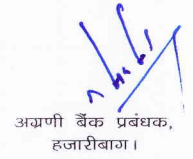 अग्रणी बैंक प्रबंधक,
हजारीबाग।